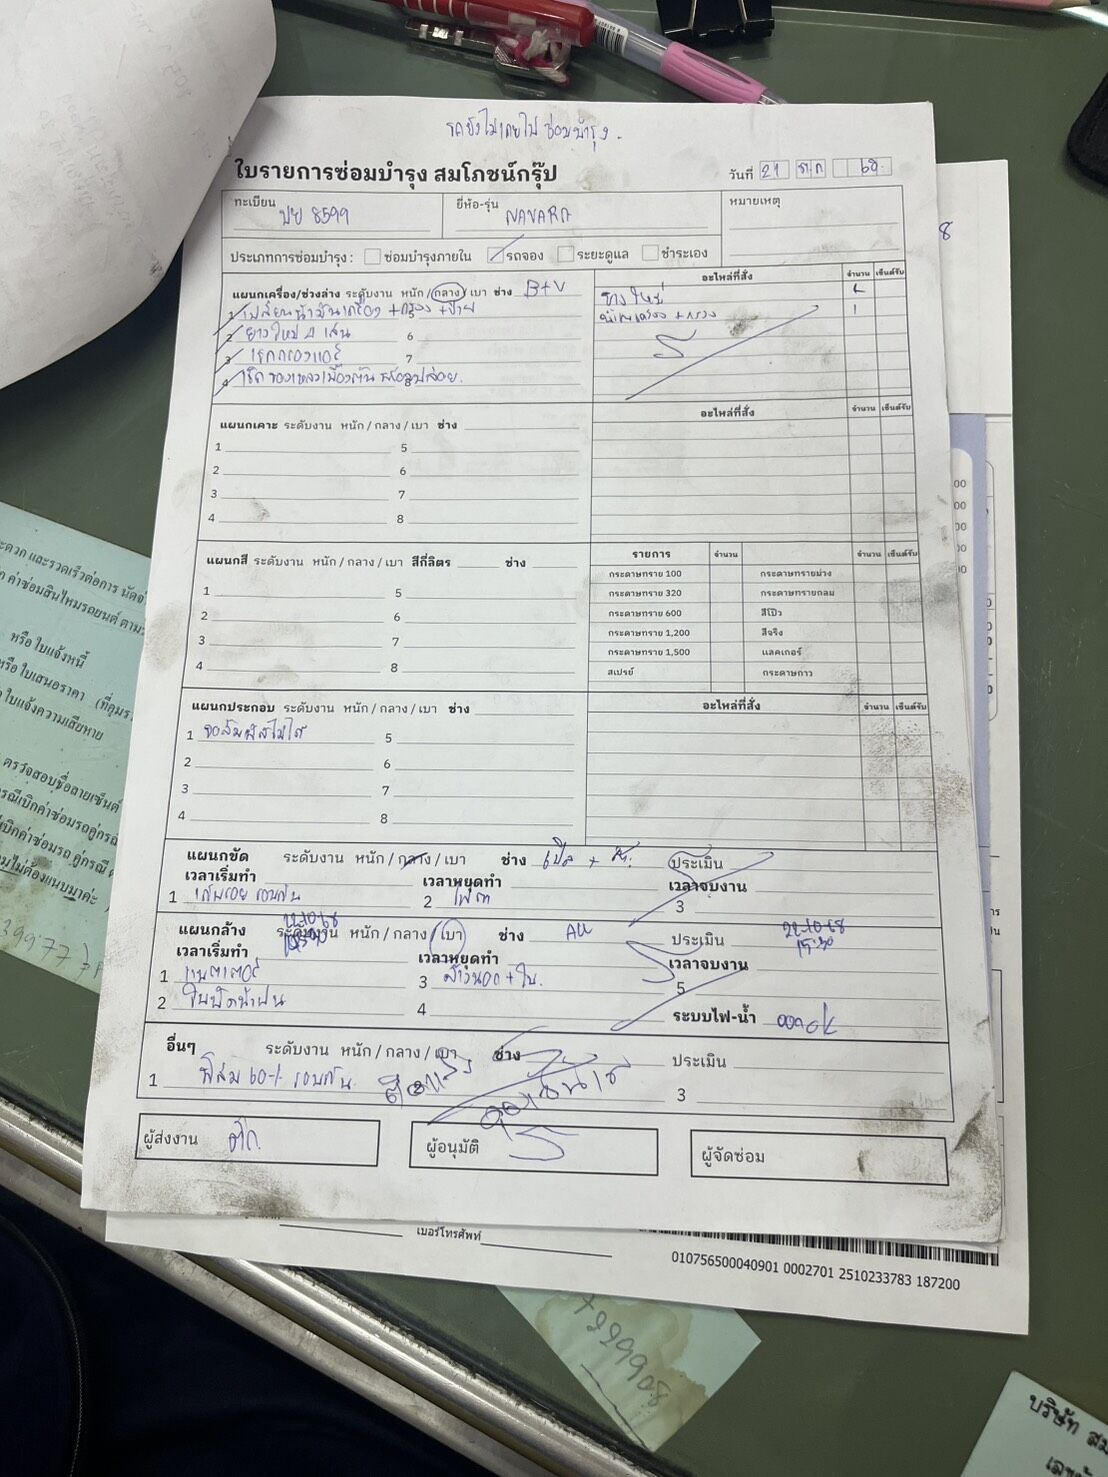 รถยังไม่เคยไปซ่อมบำรุง.
ใบรายการซ่อมบำรุง สมโภชน์กรุ๊ป
วันที่ 21 ตค 68
ทะเบียน
8599
ยี่ห้อ-รุ่น
NAVARA
หมายเหตุ
ประเภทการซ่อมบำรุง : ซ่อมบำรุงภายใน รถจอง ระยะดูแล ชำระเอง
แผนกเครื่อง/ช่วงล่าง ระดับงาน หนัก/กลาง/เบา ช่าง B+V
อะไหล่ที่สั่ง จำนวน เซ็นต์รับ
1 เปลี่ยนน้ำมันเครื่อง +กรอง +ป้าย
2 ยางใหม่ 4 เส้น 6
3 เช็คกรองแอร์ 7
4 เช็ค ของเหลวเบื้องต้น
ยางใหม่ 4
น้ำมันเครื่อง + กรอง 1
แผนกเคาะ ระดับงาน หนัก / กลาง / เบา ช่าง
อะไหล่ที่สั่ง จำนวน เซ็นต์รับ
1 5
2 6
3 7
4 8
แผนกสี ระดับงาน หนัก / กลาง / เบา สีกี่ลิตร ช่าง
รายการ จำนวน จำนวน เซ็นต์รับ
1 5
2 6
3 7
4 8
กระดาษทราย 100 กระดาษทรายม่วง
กระดาษทราย 320 กระดาษทรายกลม
กระดาษทราย 600 สีโป๊ว
กระดาษทราย 1,200 สีจริง
กระดาษทราย 1,500 แลคเกอร์
สเปรย์ กระดาษกาว
แผนกประกอบ ระดับงาน หนัก / กลาง / เบา ช่าง
อะไหล่ที่สั่ง จำนวน เซ็นต์รับ
1 จอสัมผัสไม่ได้ 5
2 6
3 7
4 8
แผนกขัด ระดับงาน หนัก / กลาง / เบา ช่าง ประเมิน
เวลาเริ่มทำ เวลาหยุดทำ เวลาจบงาน
1 เก็บรอย รอบคัน 2 ไฟตา 3
แผนกล้าง ระดับงาน หนัก / กลาง / เบา ช่าง AU ประเมิน
22-10-68
22-10-68
15:30
เวลาเริ่มทำ เวลาหยุดทำ เวลาจบงาน
1 แบตเตอรี่ 3 ล้างนอก + ใน. 5
2 ใบปัดน้ำฝน 4 ระบบไฟ-น้ำ ok
อื่นๆ ระดับงาน หนัก / กลาง / เบา ช่าง ประเมิน
1 ฟิล์ม 60% รอบคัน 3
ผู้ส่งงาน
ผู้อนุมัติ
ผู้จัดซ่อม
เบอร์โทรศัพท์
010756500040901 0002701 2510233783 187200
หรือ ใบแจ้งหนี้
หรือ ใบเสนอราคา
ใบแจ้งความเสียหาย